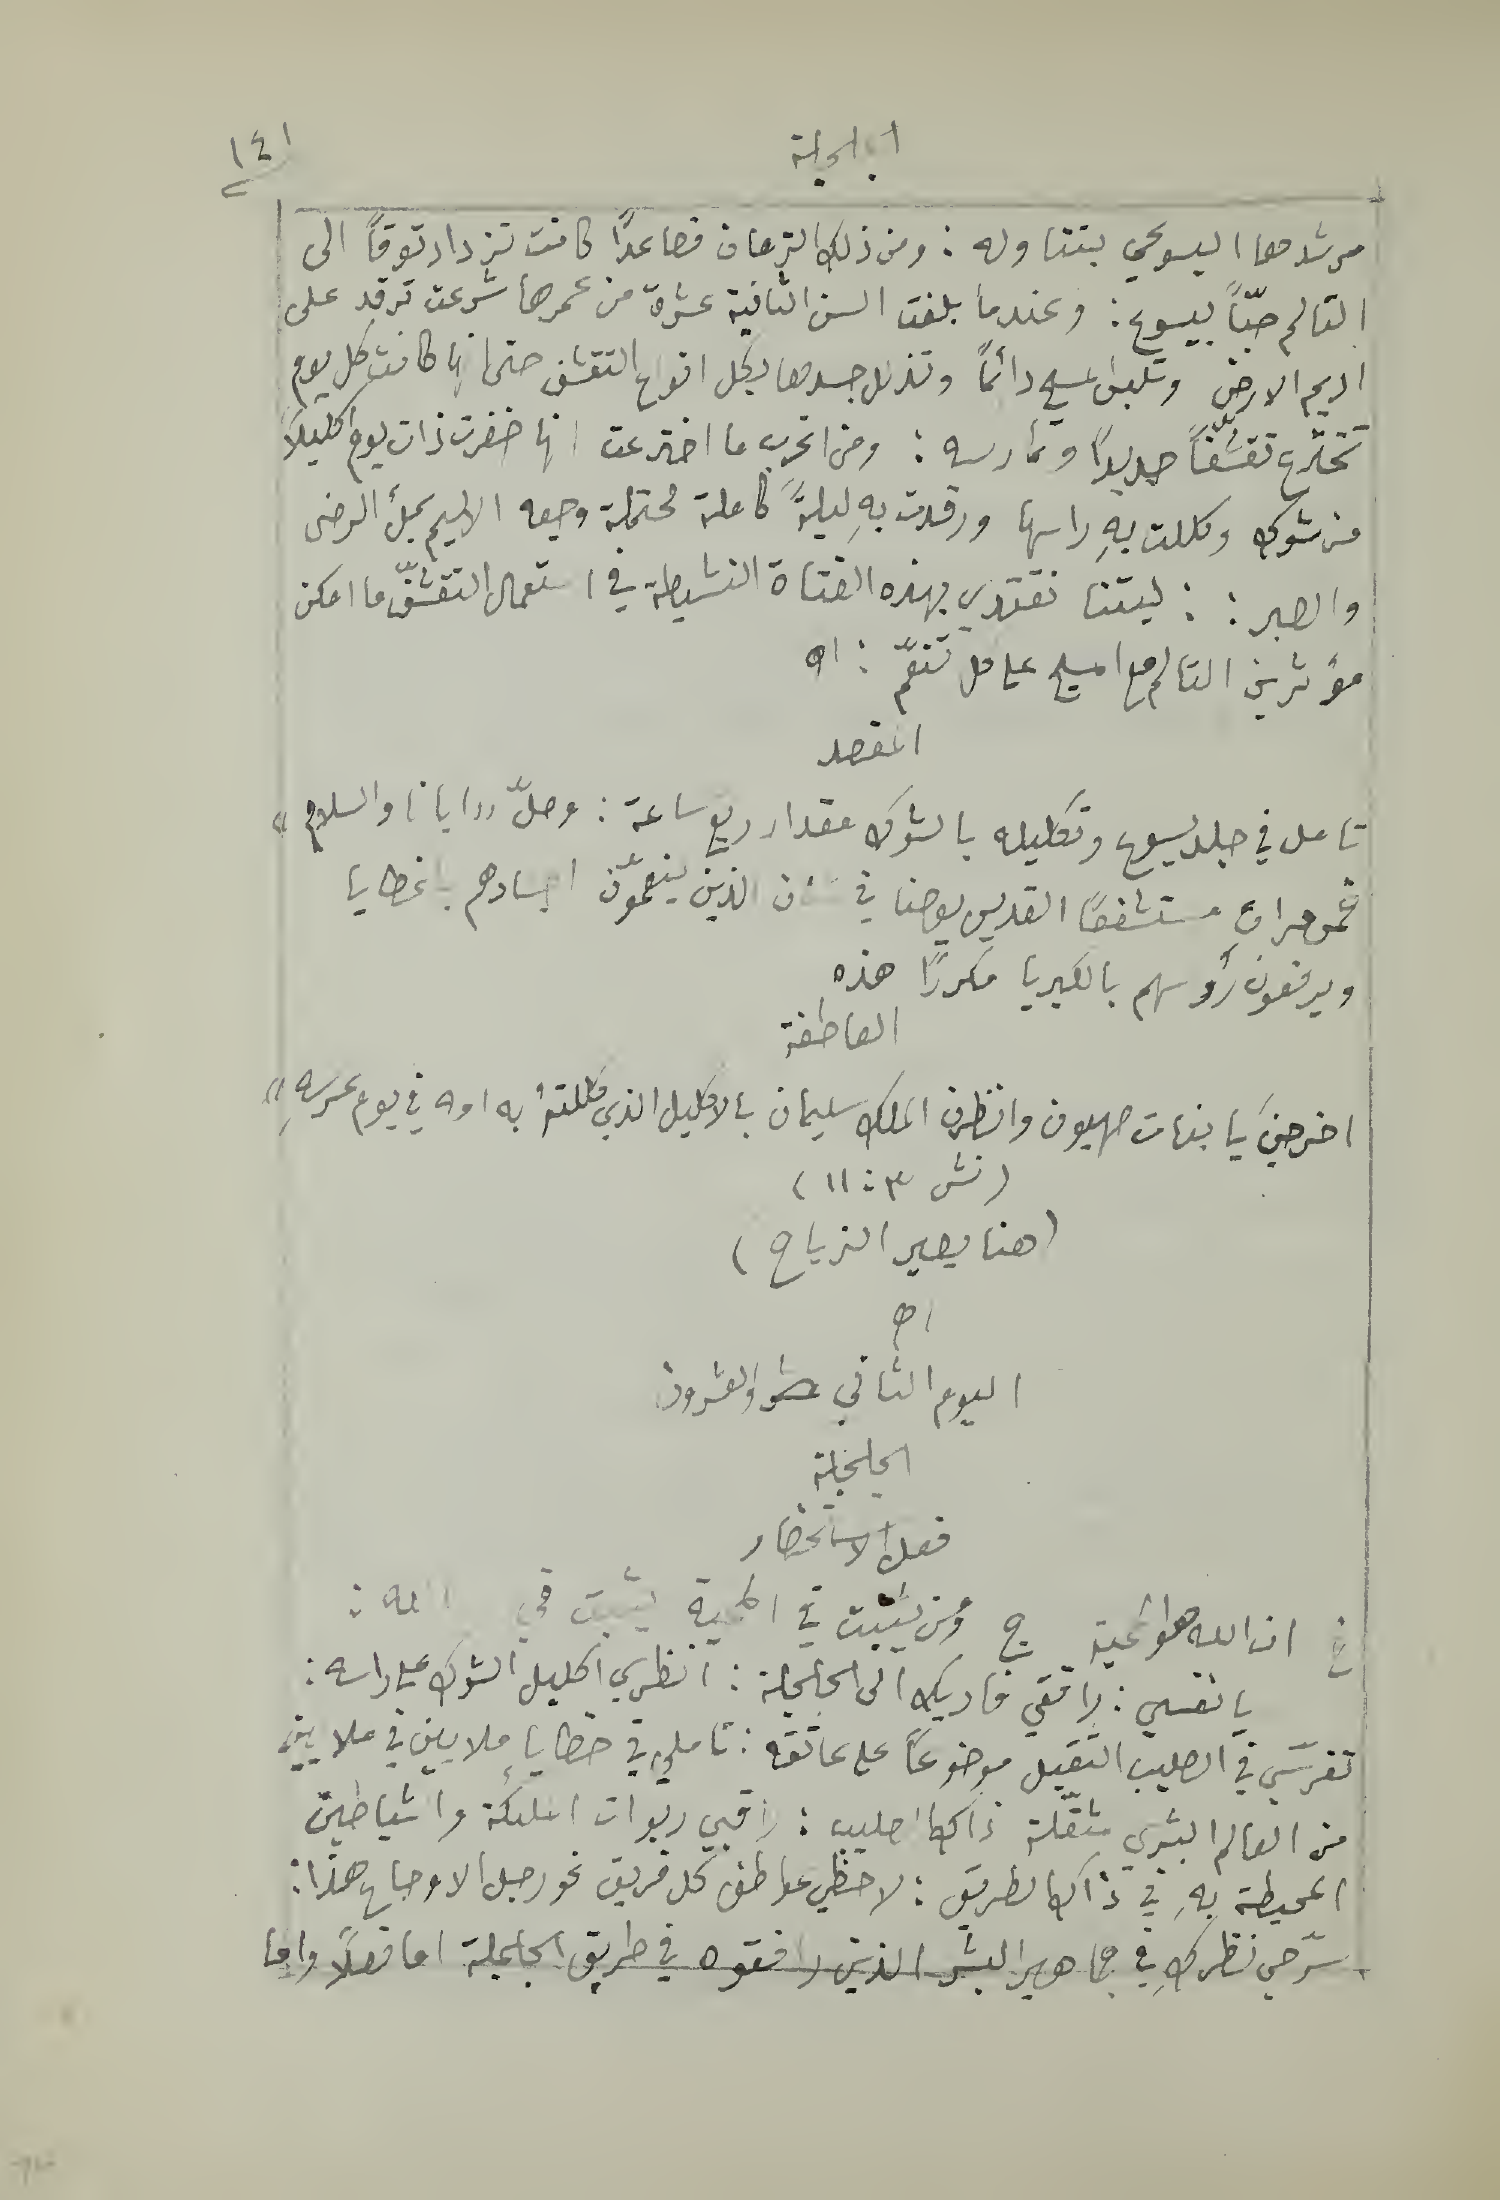 الجلجلة
١٤١
مرشدها اليسوعي بتناوله : ومن ذلك الزمان فصاعدًا كانت تزداد توقاً الى
التالم حبّاً بيسوع : وعندما بلغت السن الثانية عشرة من عمرها شرعت ترقد على
اديم الارض وتلبس المسح دائماً وتذلل جسدها بكل انواع التقشف حتى انها كانت كل يوم
تخترع تقشّفاً جديدًا وتمارسه : ومن اغرب ما اخترعت انها ضفرت ذات يوم اكليلاً
من شوك وكللت بهِ راسها ورقدت بهِ ليلةً كاملة محتملة وجعه الاليم بملء الرضى
والصبر : : ليتنا نقتدي بهذه الفتاة النشيطة في استعمال التقشّف ما امكن
مؤثرين التالم مع المسيح على كل تنعّم : اه
المقصد
تامل في جلد يسوع وتكليله بالشوك مقدار ربع ساعة : وصلّ »ابانا والسلام«
خمس مرات مستشفعًا القديس يوحنا في شان الذين ينعمّون اجسادهم بالخطايا
ويرفعون رؤوسهم بالكبريا مكررًا هذه
العاطفة
اخرجنَ يا بنات صهيون وانظرن الملك سليمان بالاكليل الذي كللتهُ به امه في يوم عرسهِ »
(نش ٣ : ١١)
(هنا يصير الزياح)
اه
اليوم الثاني والعشرون
الجلجلة
فعل الاستحضار
خ ان الله هو المحبة ج ومن يثبت في المحبة يثبت في الله :
يا نفسي : رافقي فاديك الى الجلجلة : انظري اكليل الشوك على راسه :
تفرسّي في الصليب الثقيل موضوعاً على عاتقه : تاملي في خطايا ملايين في ملايين
من العالم البشري مثقّلة ذاك الصليب : راقبي ربوات الملئكة والشياطين
المحيطة بهِ في ذاك الطريق : لاحظي عواطف كل فريق نحو رجل الاوجاع هذا :
سرّحي نظركِ في جماهير البشر الذين رافقوه في طريق الجلجلة اما فعلاً واما